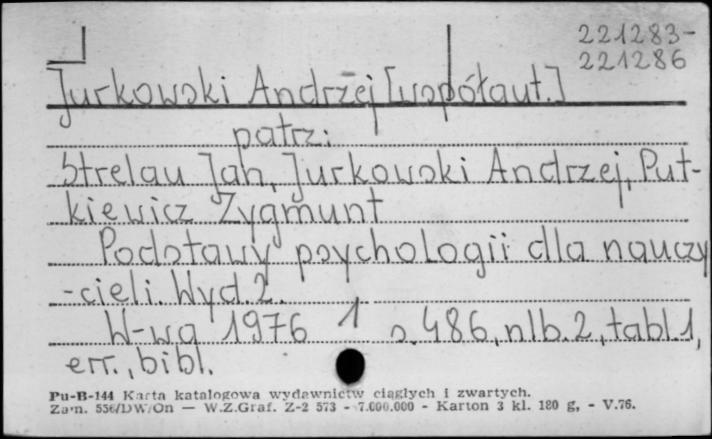 221283-
221286
Jurkowski Andrzej [współaut.]
patrz:
Strelau Jan, Jurkowski Andrzej, Put-
kiewicz Zygmunt
Podstawy psychologii dla nauczy
-cieli. Wyd. 2.
W-wa 1976 1 s. 486, nlb. 2, tabl. 1,
err., bibl.
Pu-B-144 Karta katalogowa wydawnictw ciągłych i zwartych.
Zam. 556/DW/On — W.Z.Graf. Z-2 573 - 7.000.000 - Karton 3 kl. 180 g, - V.76.